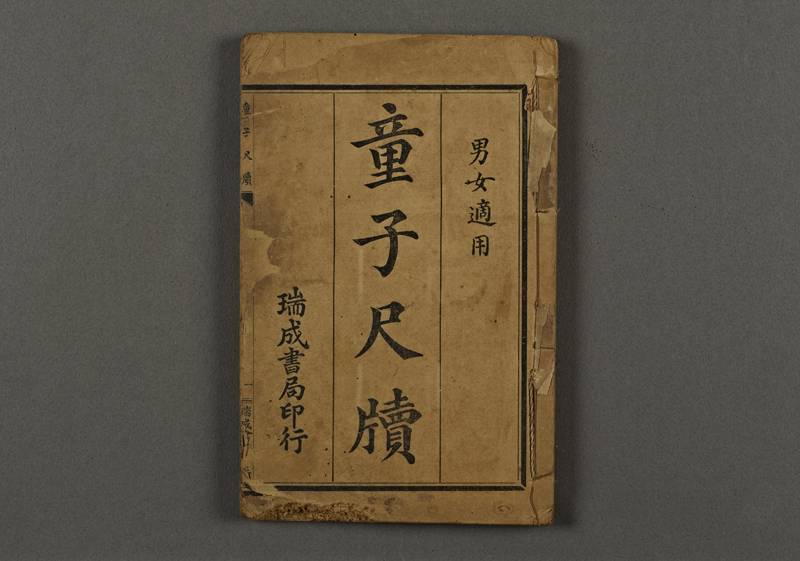 男女適用
童子尺牘
瑞成書局印行
童子尺牘
一
瑞成